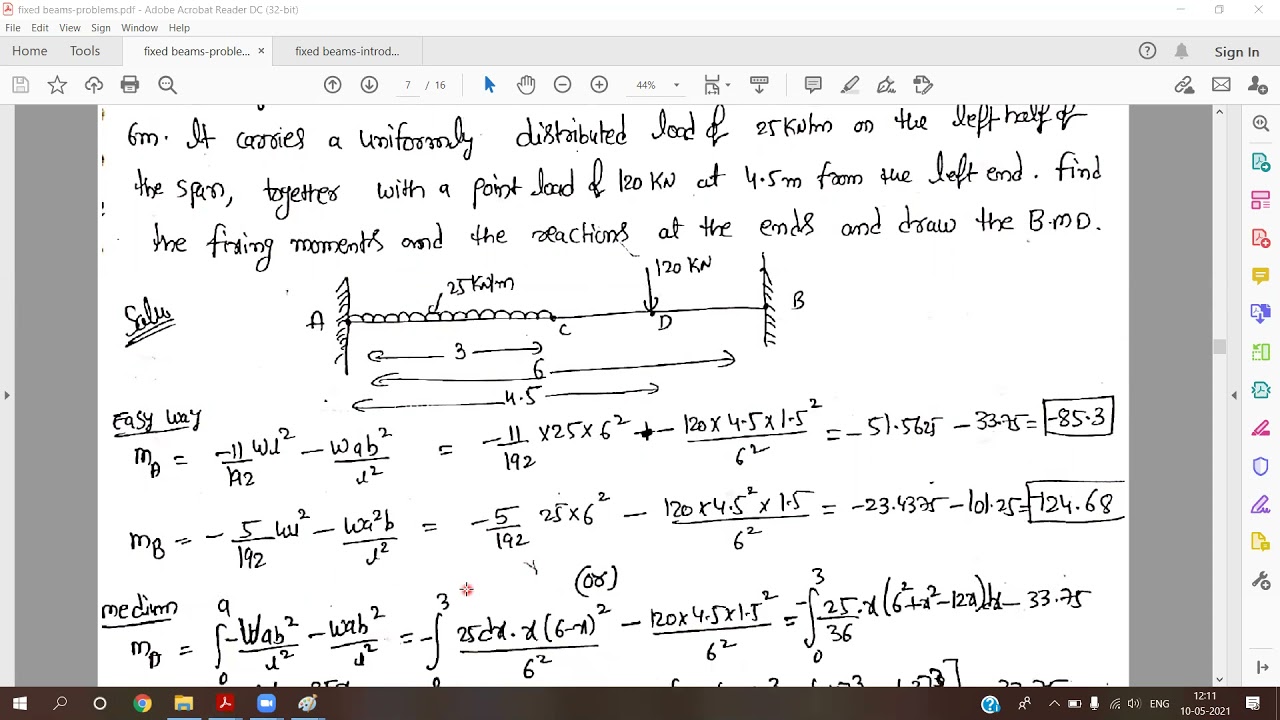 fixed beams-problems.pdf - Adobe Acrobat Reader DC (32-bit)
File Edit View Sign Window Help
Home Tools fixed beams-proble... × fixed beams-introd... Sign In
7 / 16 44%
6m. It carries a uniformly distributed load of 25 KN/m on the left half of
the span, together with a point load of 120 KN at 4.5m from the left end. find
the fixing moments and the reactions at the ends and draw the B.M.D.
Soln
25 KN/m 120 KN
A C D B
3
6
4.5
Easy way
MA = -11/192 wl² - wab²/l² = -11/192 × 25 × 6² - 120×4.5×1.5²/6² = -51.5625 - 33.75 = -85.3
MB = -5/192 wl² - wa²b/l² = -5/192 25×6² - 120×4.5²×1.5/6² = -23.4375 - 101.25 = -124.68
(or)
medium
MA = ∫₀ᵃ -Wab²/l² - wab²/l² = -∫₀³ 25dx.x(6-x)²/6² - 120×4.5×1.5²/6² = -∫₀³ 25/36 .x(6²+x²-12x)dx - 33.75
ENG 12:11
10-05-2021